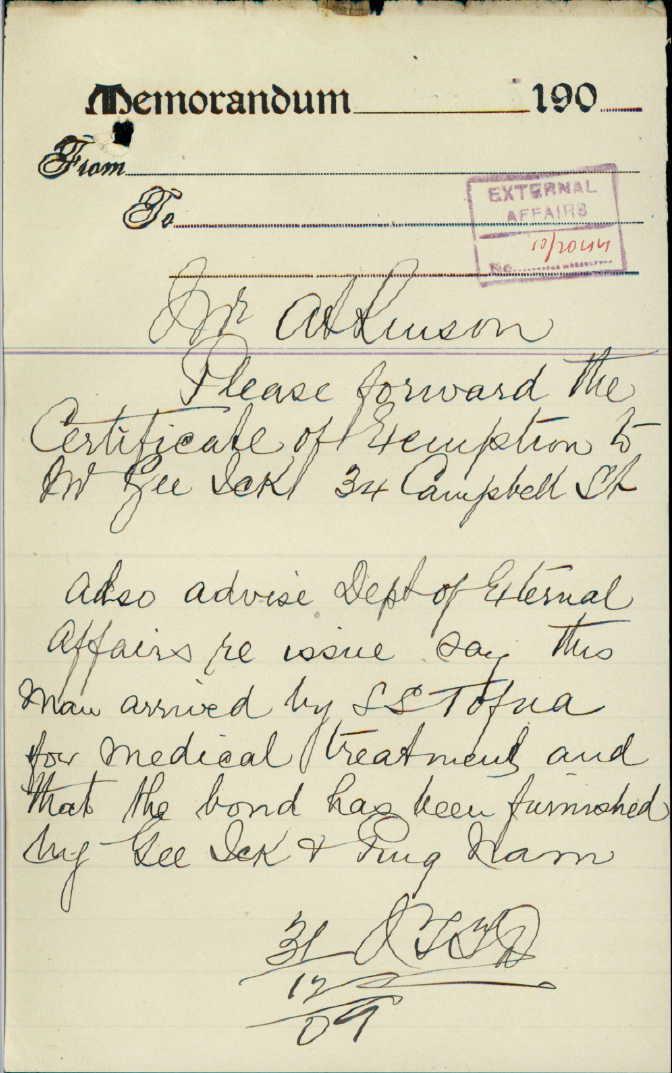 Memorandum 190
From
To
EXTERNAL
AFFAIRS
No. 10/20444
Mr Atkinson
Please forward the
Certificate of Exemption to
Mr Gee Ick 34 Campbell St
Also advise Dept of External
Affairs re issue say this
man arrived by SS Tofua
for medical treatment and
that the bond has been furnished
by Gee Ick & Ping Nam
31
12
09